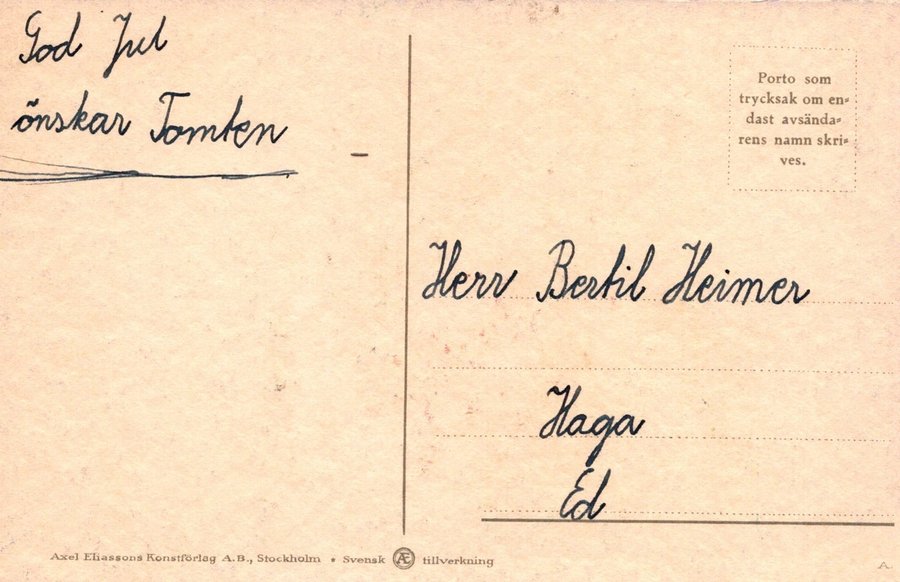 God Jul
önskar Tomten
Porto som
trycksak om en-
dast avsända-
rens namn skri-
ves.
Herr Bertil Heimer
Haga
Ed
Axel Eliassons Konstförlag A.B., Stockholm • Svensk Æ tillverkning
A.